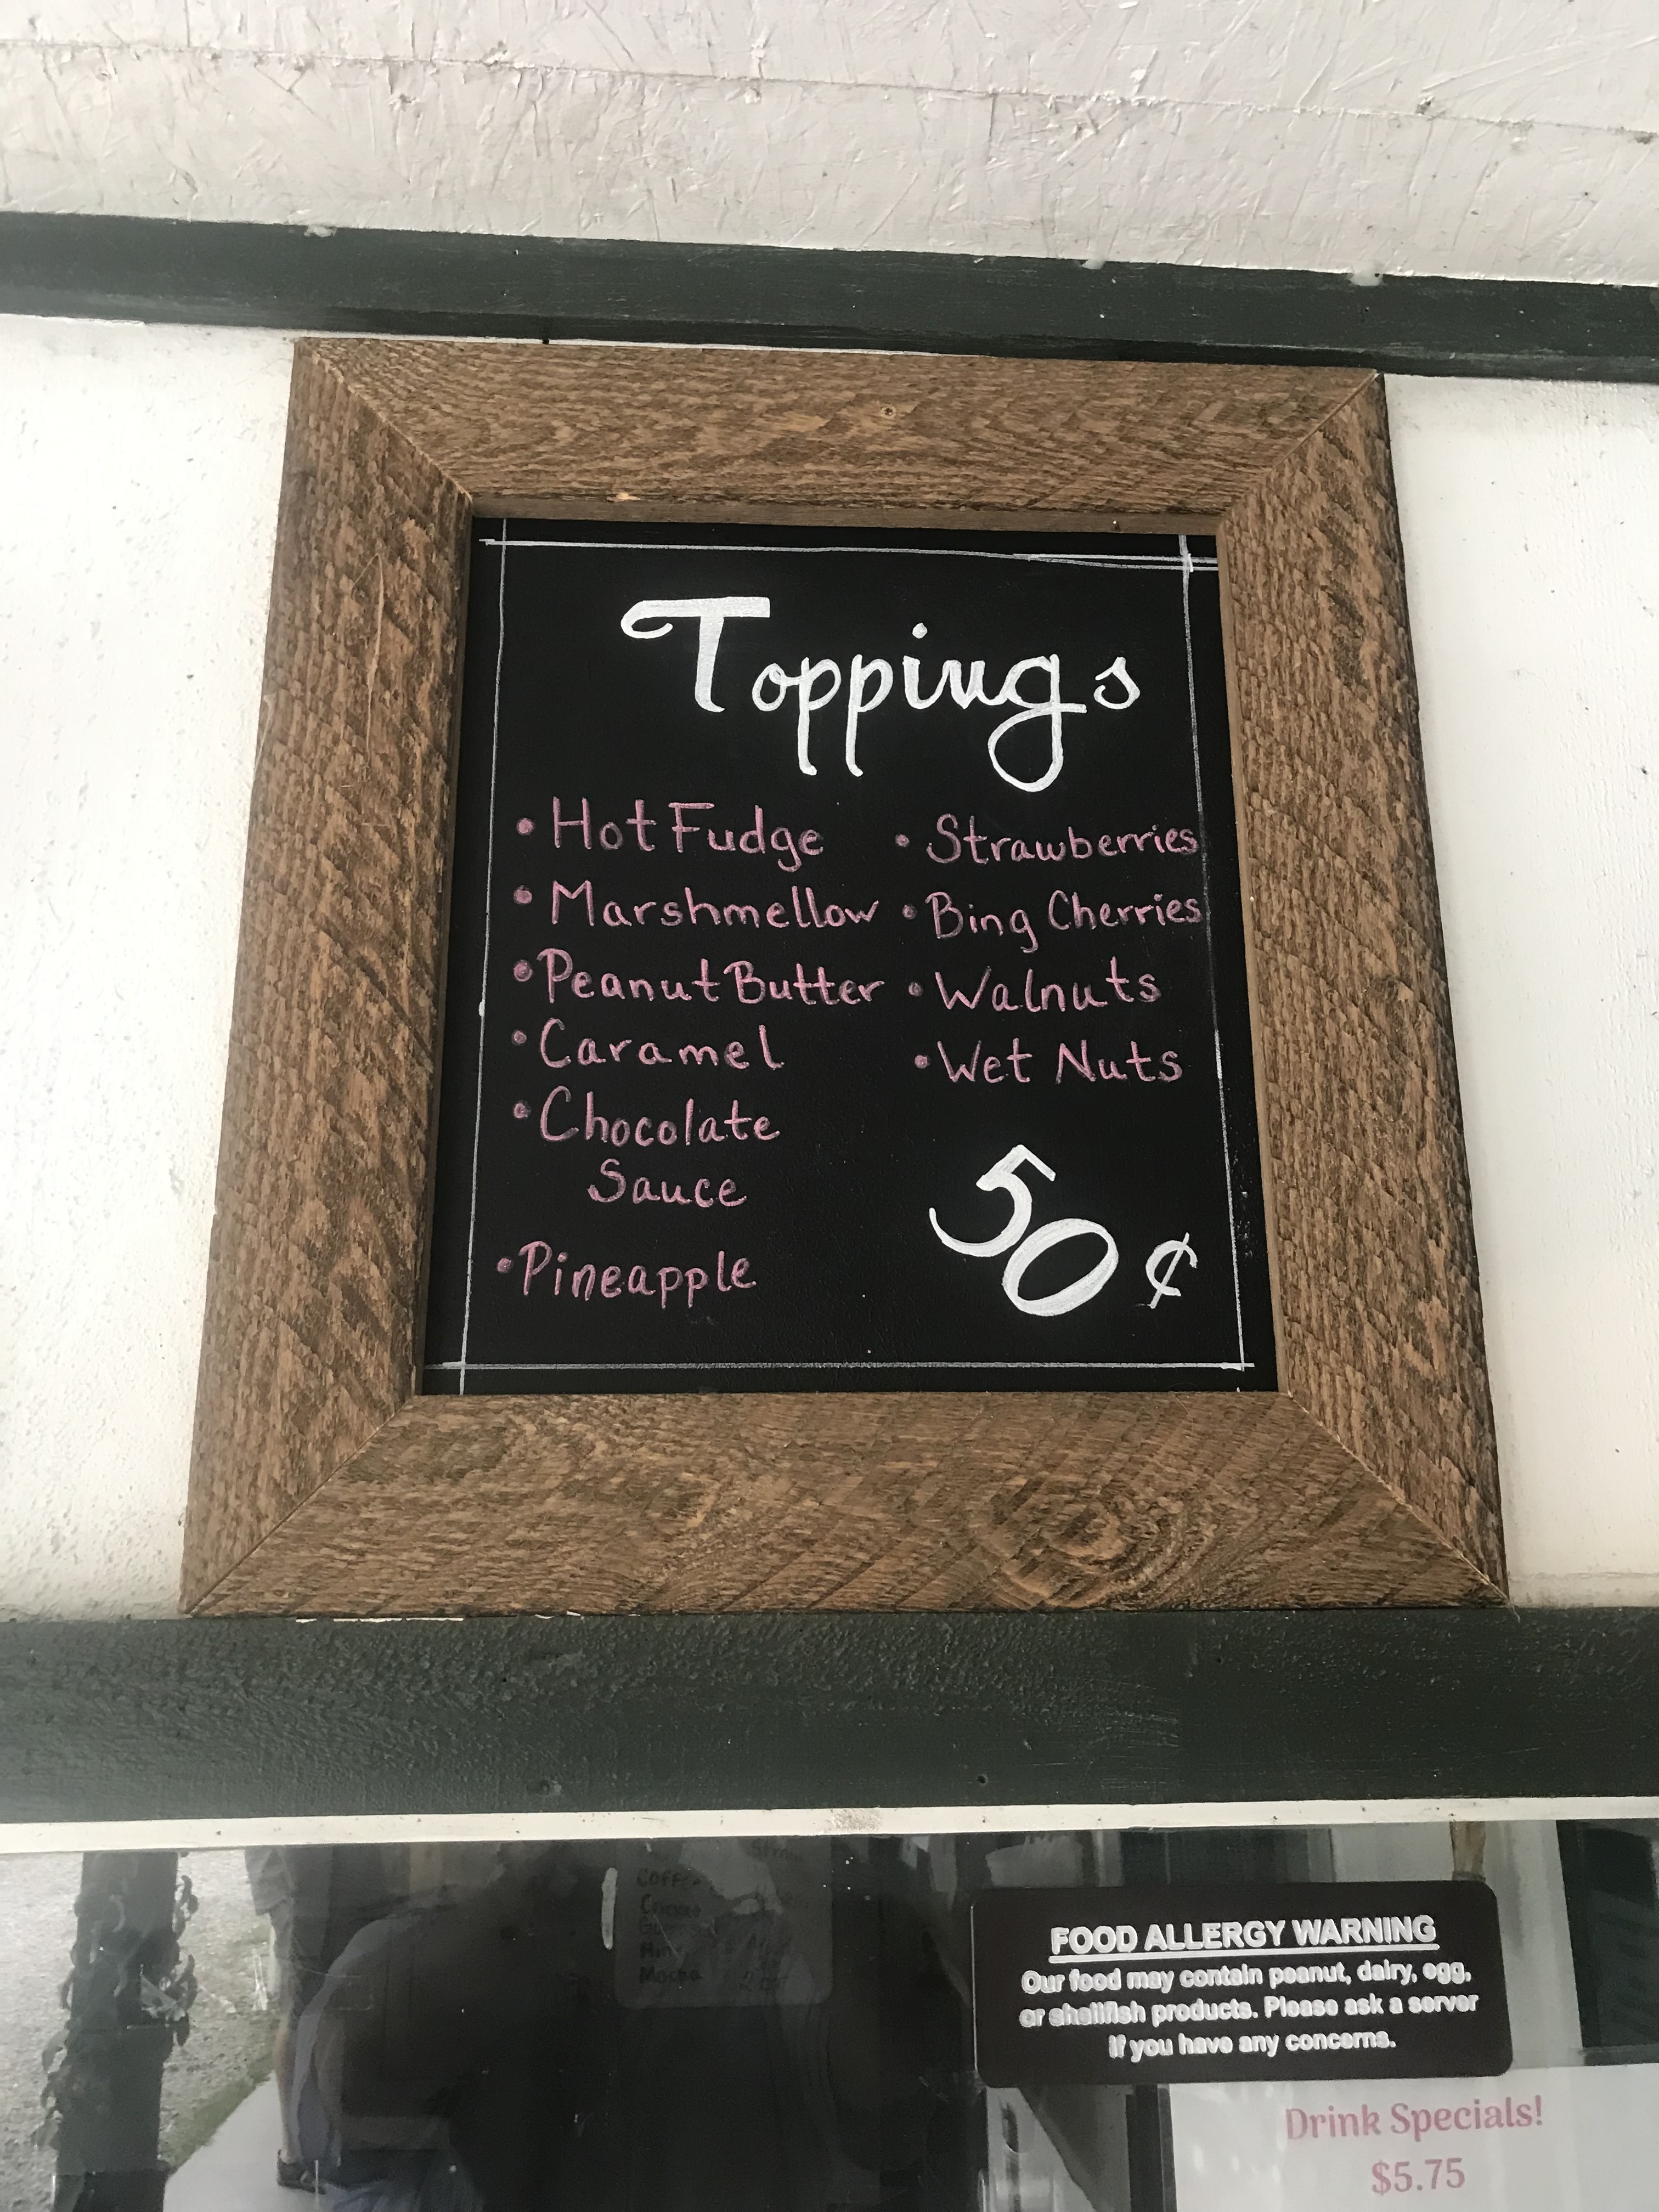 Toppings
• Hot Fudge
• Marshmellow
• Peanut Butter
• Caramel
• Chocolate
Sauce
• Pineapple
• Strawberries
• Bing Cherries
• Walnuts
• Wet Nuts
50 ¢
FOOD ALLERGY WARNING
Our food may contain peanut, dairy, egg,
or shellfish products. Please ask a server
if you have any concerns.
Drink Specials!
$5.75